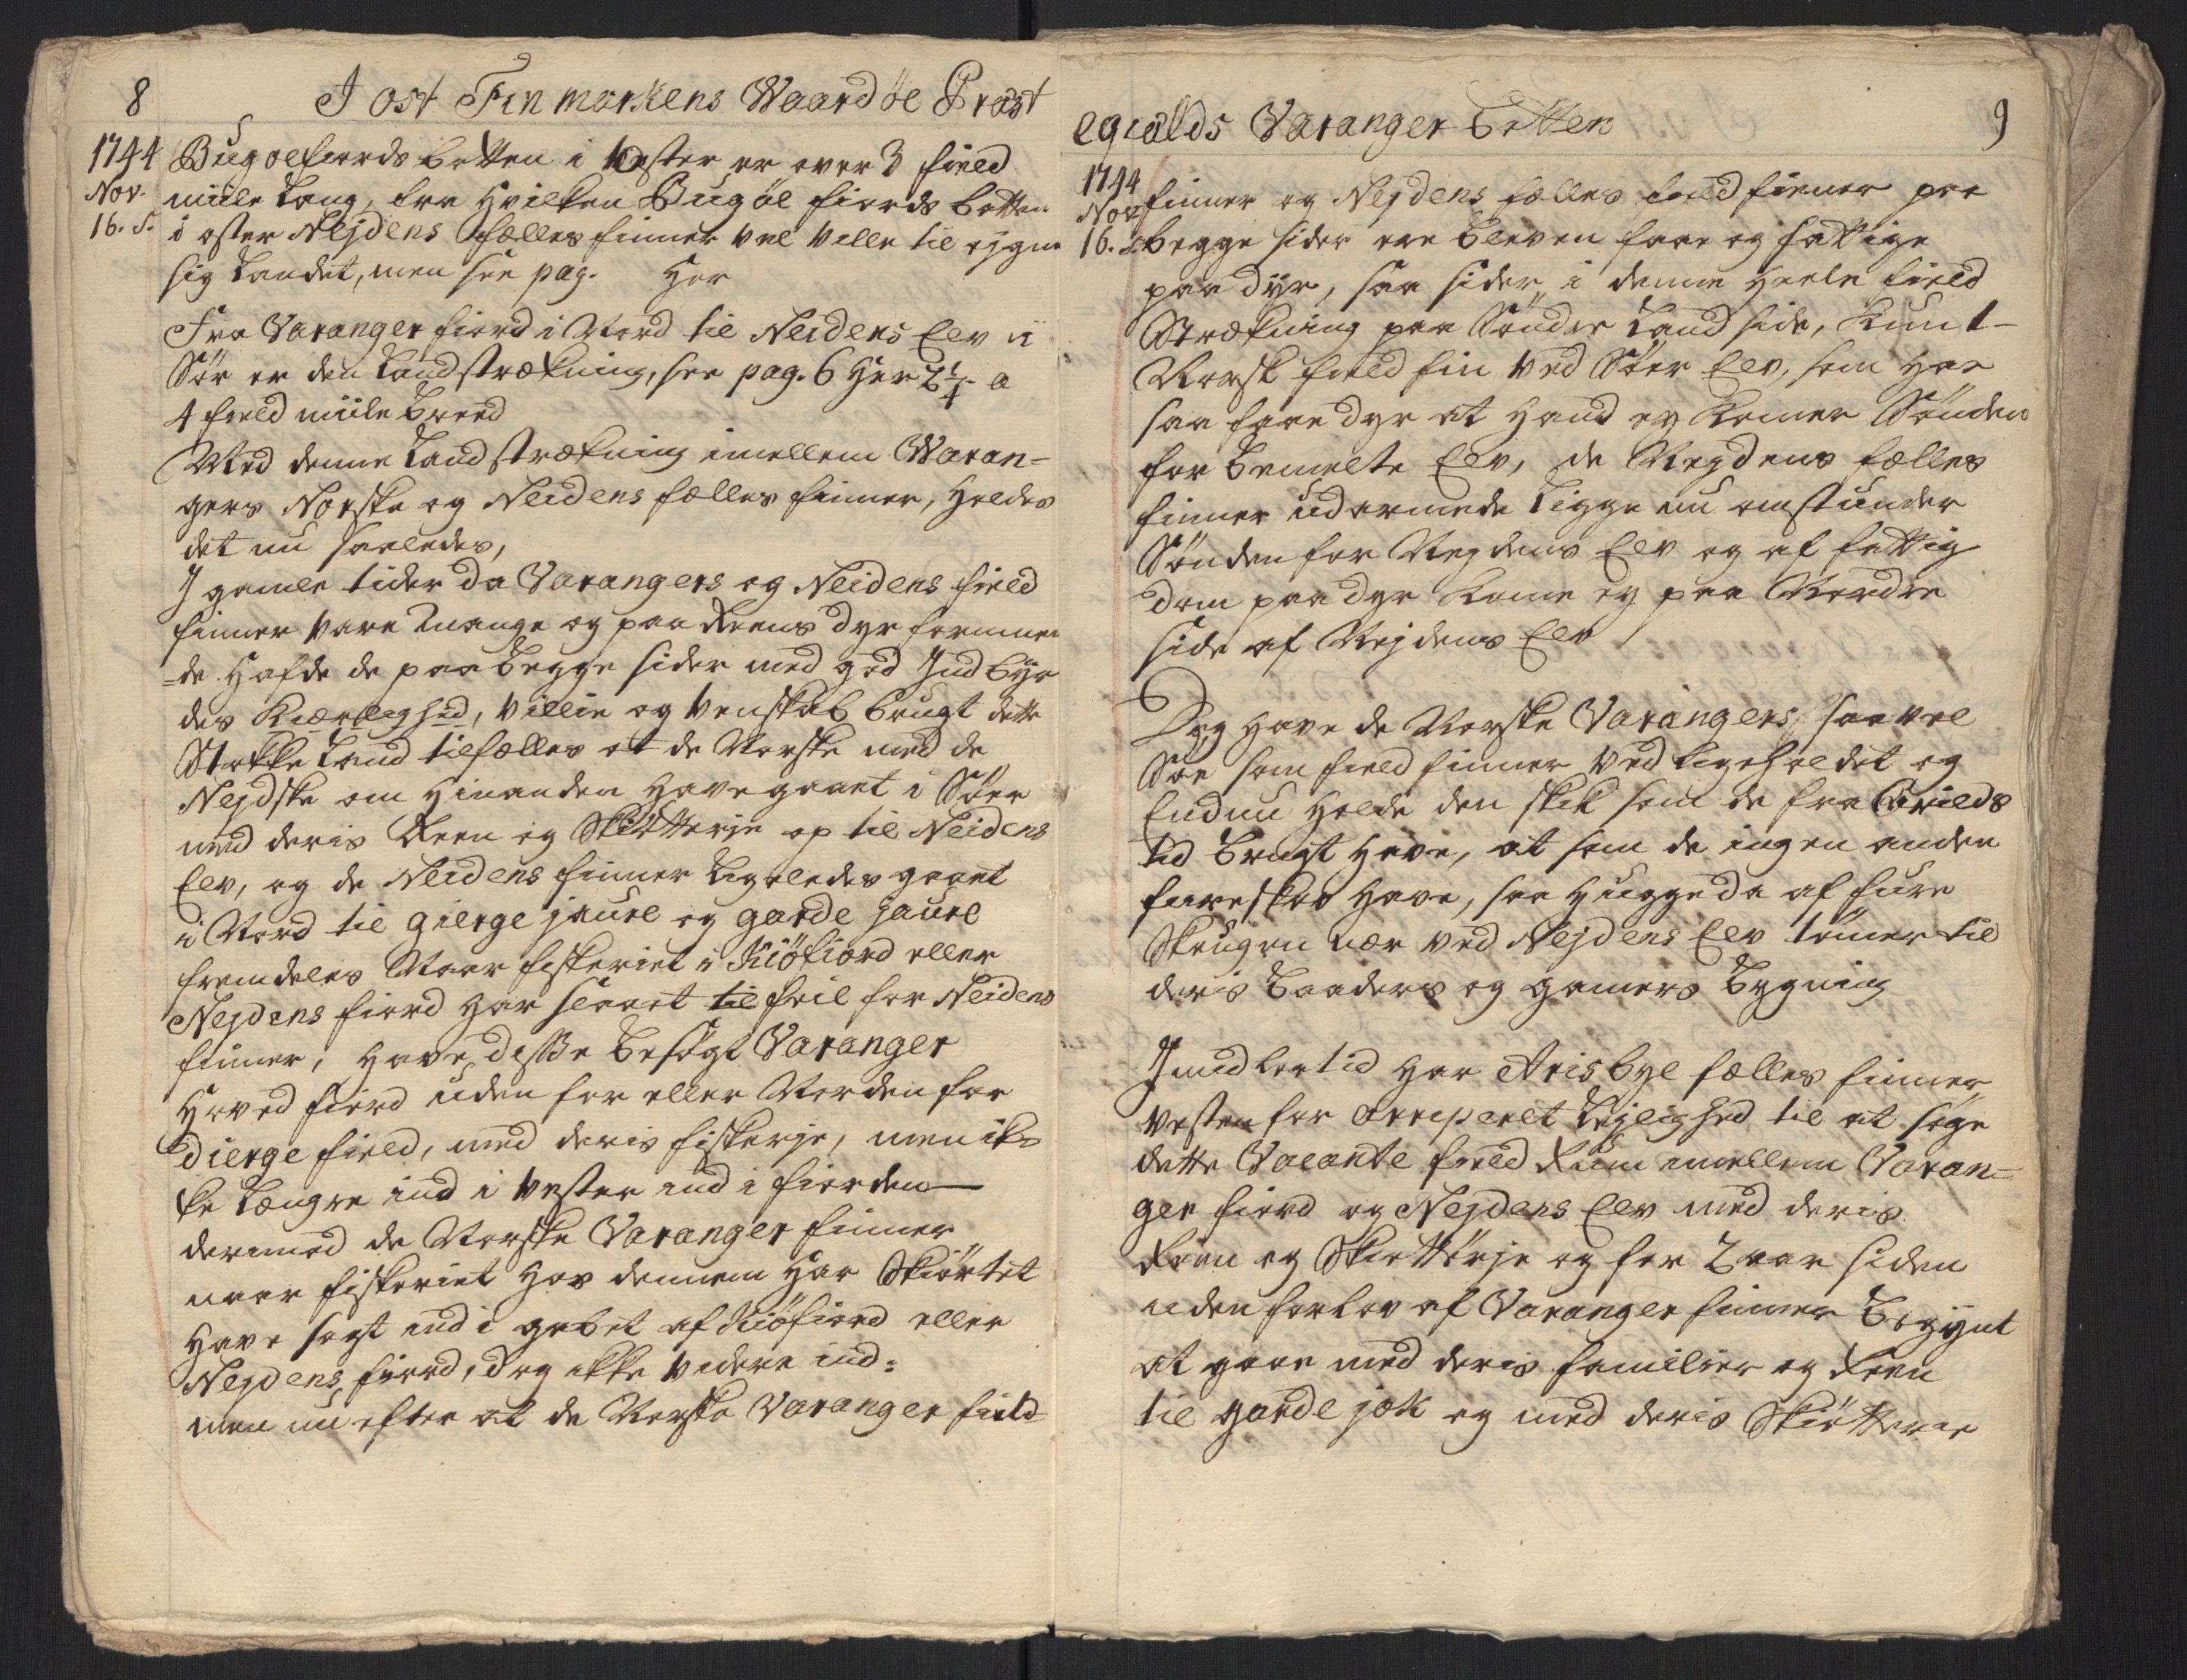 8
J ost Finmarkens Waardöe Præst
1744
Nov.
16. s.
Bugoefiords botten i Vester er over 3 field
miile lang, fra hvilken Bugöe fiords botten
i oster Nejdens fælles finner vel ville til eygne
sig landet, men see pag. her
Fra Varanger fiord i Nord til Neidens Elv i
Sör er den landstrækning, see pag. 6 her 2 1/4 a
4 field miile breed
Med denne landstrækning imellem Waran-
gers Norske og Neidens fælles finner, holdes
det nu saaledes,
J gamle tider da Varangers og Neidens field
finner vare mange og paa Reens dyr formuen
=de hafde de paa begge sider med god Indbyr
des Kiærlighed, villie og venskab brugt dette
Stökke land tilfælles at de Norske med de
Nejdske om hinanden have gaaet i Söer
med deris Reen og Skiötterje op til Neidens
Elv, og de Neidens finner ligeledes gaaet
i Nord til gierge jaure og garde jaure
fremdeles Naar fiskeriet i Kiöfiord eller
Nejdens fiord har slaaet til feil for Neidens
finner, have disse besögt Varanger
hoved fiord uden for eller Norden for
dierge field, med deris fiskerje, men ik=
ke længre ind i vester ind i fiorden
dermod de Norske Varanger finner
naar fiskeriet hos dennem har Skiörtet
have sögt ind i gabet af Kiöfiord eller
Nejdens fiord, dog ikke videre ind:
men nu efter at de Norske Varanger field-
egiælds Varanger botten
9
1744
Nov
16. s.
finner og Nejdens fælles field finner paa
begge sider ere bleven faae og fattige
paa dyr, saa sider i denne heele field
Strækning paa Söndre land side, Kun 1-
Norsk field fin ved Söer Elv, som har
saa faae dyr at hand ey kommer Sönden
for bemelte Elv, de Nejdens fælles
finner udarmede ligge nu omstunder
Sönden for Nejdens Elv og af fattig
dom paa dyr komme ey paa Nordre
side af Nejdens Elv
Dog have de Norske Varangers saavel
Söe som field finner vedligeholdet og
Endnu holde den skik som de fra Arilds
tid brugt have, at som de ingen anden
fureskov have, saa hugge de af fure
Skougen nær ved Nejdens Elv tömer til
deris baaders og gamers bygning
Imidlertid har Arisbye fælles finner
vesten for arriperet leylighed til at söge
dette Vacante field Rum imellem Varan-
ger fiord og Nejdens Elv med deris
Reen og Skiötterje og for 2 aar siden
uden forlov af Varanger finner begynt
at gaae med deris familier og Reen
til garde jok og med deris Skiötterie